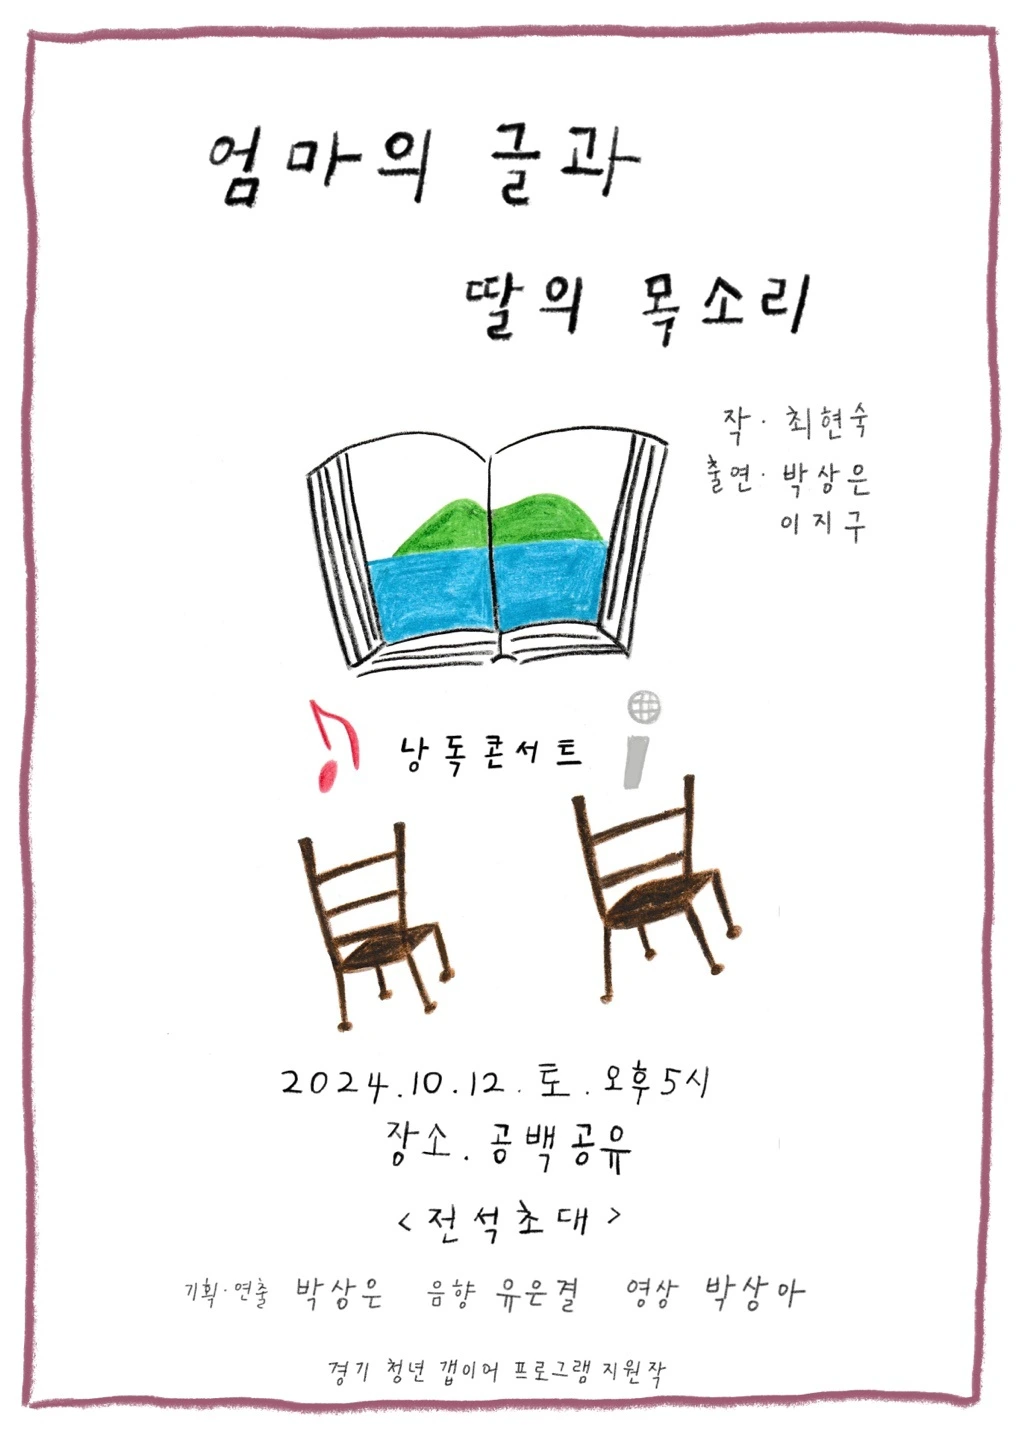 엄마의 글과
딸의 목소리
작· 최현숙
출연· 박상은
이지구
낭독콘서트
2024.10.12.토.오후5시
장소.공백공유
<전석초대>
기획·연출 박상은 음향 유은결 영상 박상아
경기 청년 갭이어 프로그램 지원작